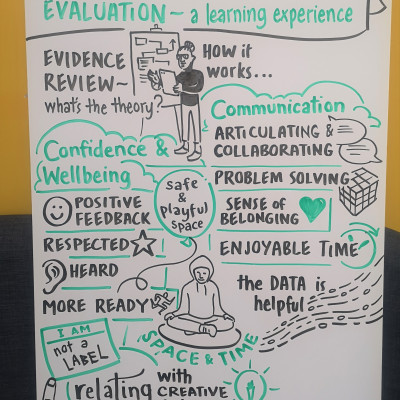 EVALUATION ~ a learning experience
EVIDENCE
REVIEW ~
what's the theory?
HOW it
works...
Communication
ARTICULATING &
COLLABORATING
PROBLEM SOLVING
SENSE of
BELONGING
ENJOYABLE TIME
the DATA is
helpful
Confidence &
Wellbeing
POSITIVE
FEEDBACK
RESPECTED
HEARD
MORE READY
safe
&
playful
space
SPACE & TIME
I AM
not a
LABEL
relating
with
CREATIVE